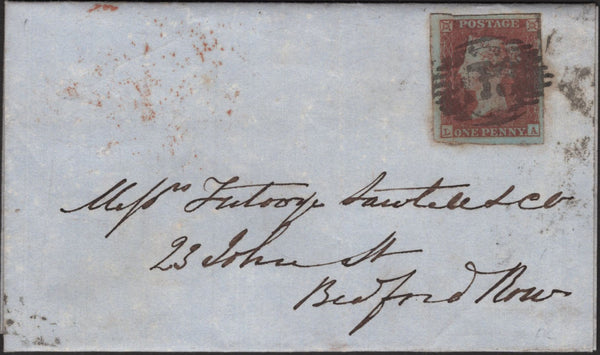 POSTAGE
L ONE PENNY A
Mess.rs Futvoye Sawtell & Co
23 John St
Bedford Row